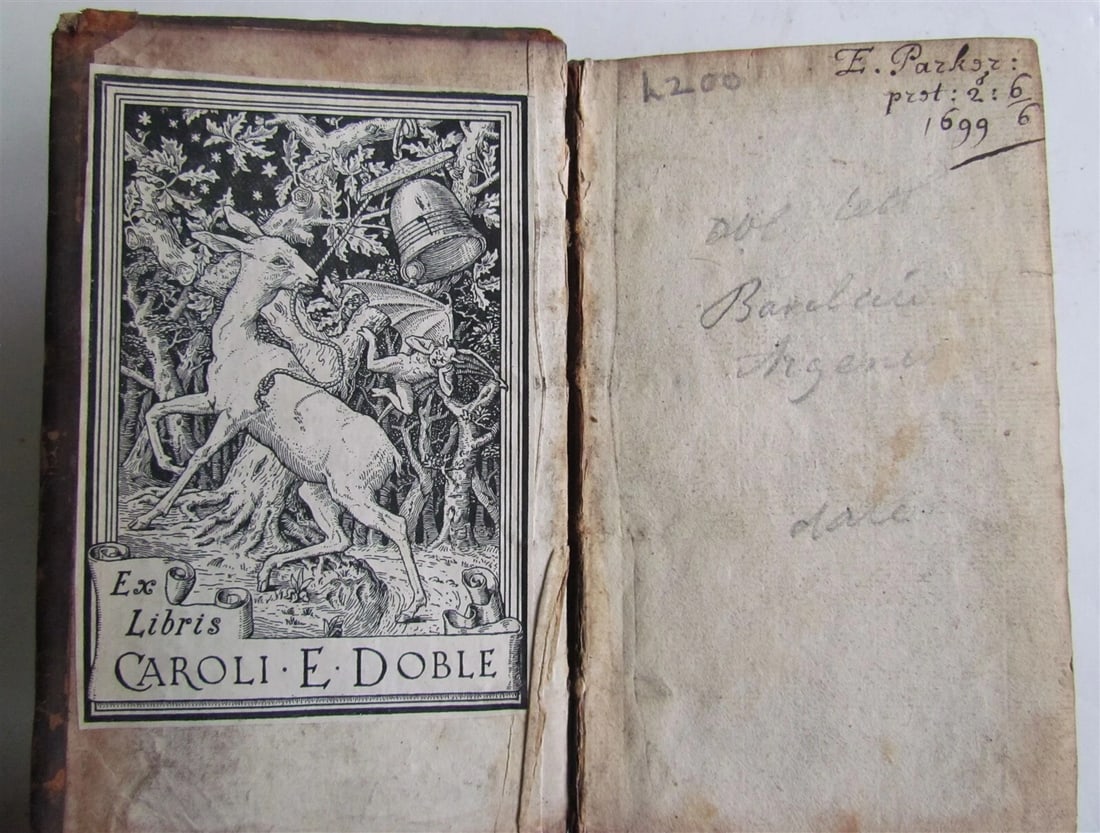 Ex
Libris
CAROLI · E · DOBLE
L200
E. Parker:
pret: 2: 6
6
1699
Barclaii
Argenis